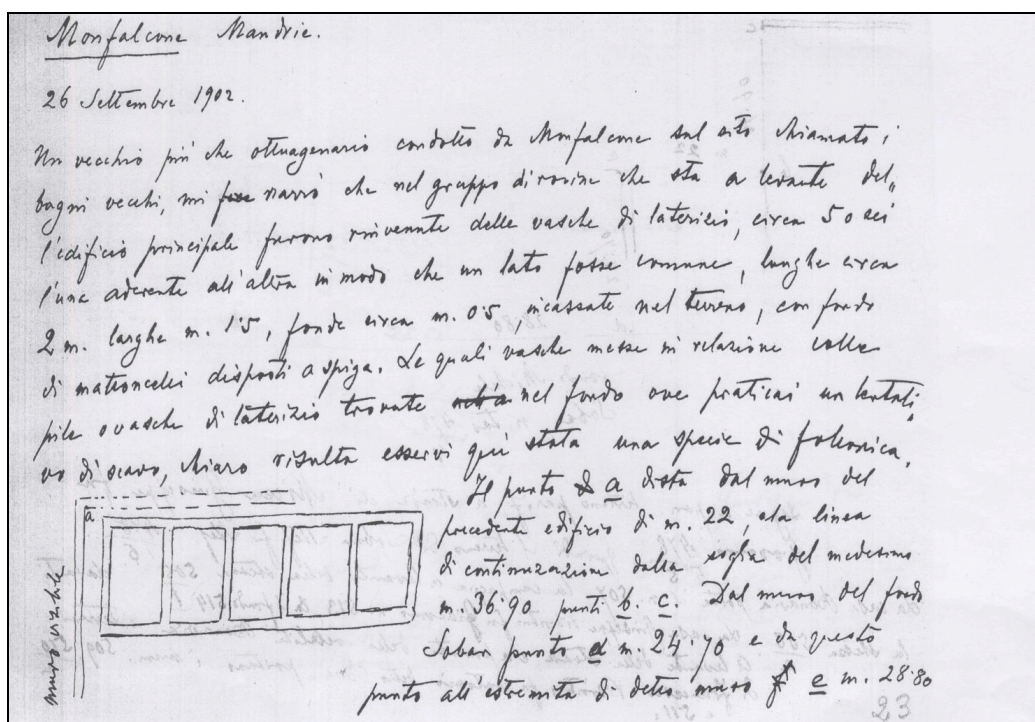 Monfalcone Mandrie.
26 Settembre 1902.
Un vecchio più che ottuagenario condotto da Monfalcone sul sito chiamato i
bagni vecchi, mi narrò che nel gruppo di rovine che sta a levante del„
l'edificio principale furono rinvenute delle vasche di laterizio, circa 5 o sei
l'una aderente all'altra in modo che un lato fosse comune, lunghe circa
2 m. larghe m. 1·5, fonde circa m. 0·5, incassate nel terreno, con fondo
di mattoncelli disposti a spiga. Le quali vasche messe in relazione colle
pile o vasche di laterizio trovate nel fondo ove praticai un tentati„
vo di scavo, chiaro risulta esservi quì stata una specie di fulonica.
Il punto a dista dal muro del
precedente edificio di m. 22, ala linea
di continuazione dalla soglia del medesimo
m. 36·90 punti b. c. Dal muro del fondo
Sobar punto d m. 24·70 e da questo
punto all'estremità di detto muro e m. 28·80
a
muro visibile
23